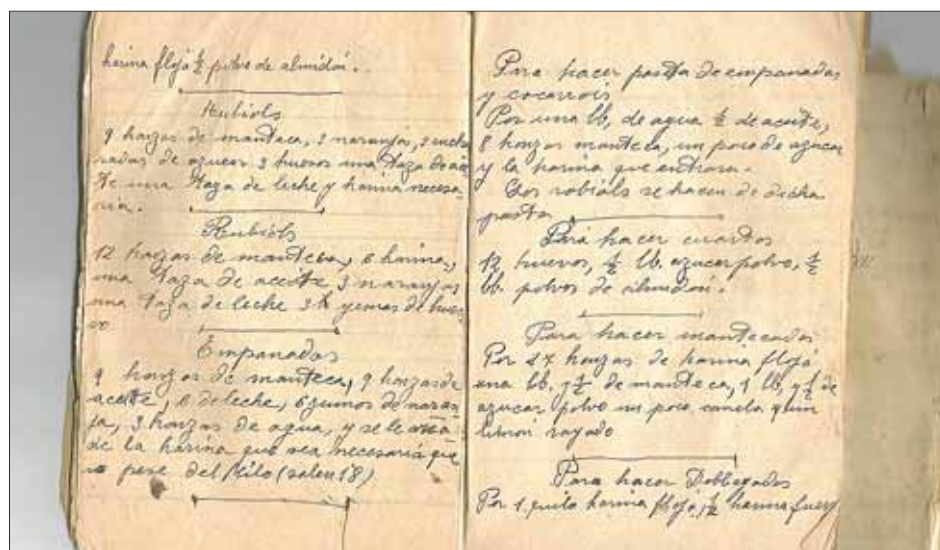 harina flojá ½ polvo de almidón.
Rubiols
9 honzas de manteca, 3 naranjas, 3 cucha
radas de azucar 3 huevos una taza de acei
te una taza de leche y harina necesa
ria.
Rubiols
12 honzas de manteca, 6 harina,
una taza de aceite, 3 naranjas
una taza de leche 3 yemas de huev
vo
Empanadas
9 honzas de manteca, 9 honzas de
aceite, 6 de leche, 6 zumos de naran
ja, 3 honzas de agua, y se le
de la harina que sea necesaria que
pese del kilo (salen 18)
Para hacer pasta de empanadas
y cocarrois
Por una lb, de agua ½ de aceite,
8 honzas manteca, un poco de azucar
y la harina que entrara.
Los robiols se hacen de dicha
pasta
Para hacer cuartos
12 huevos, ½ lb. azucar polvo, ½
lb. polvos de almidón.
Para hacer mantecados
Por 27 honzas de harina flojá
una lb. y ½ de manteca, 1 lb, y ½ de
azucar polvo un poco canela y un
limon rayado
Para hacer Doblegados
Por 1 quilo harina flojá, ½ harina fuer